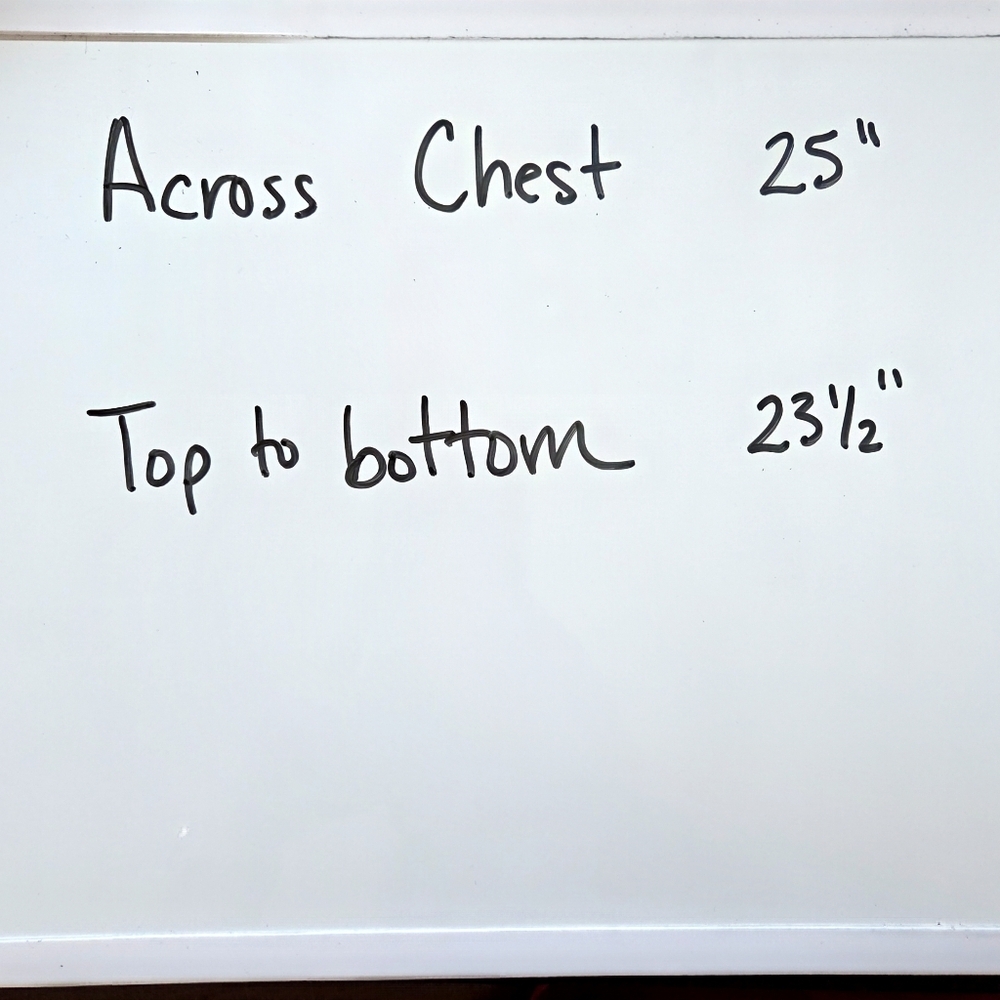 Across Chest 25"
Top to bottom 23½"